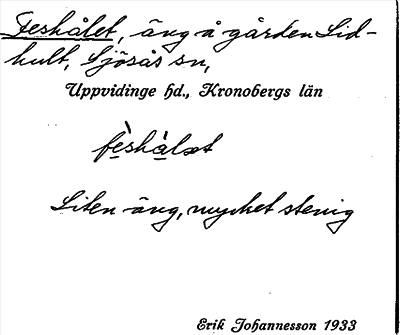 Feshålet, äng å gården Lid-
hult, Sjösås sn,
Uppvidinge hd., Kronobergs län
fèshàlət
Liten äng, mycket stenig
Erik Johannesson 1933